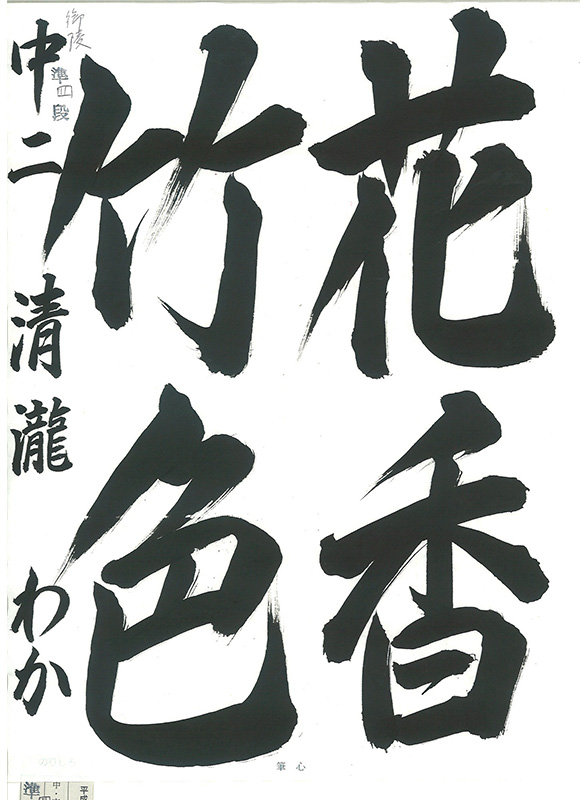 花香
竹色
中二 清瀧 わか
御陵
準四段
心筆
準四
中・
平成